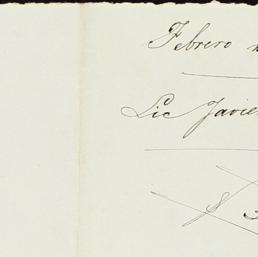 Febrero
Lic Javie
$